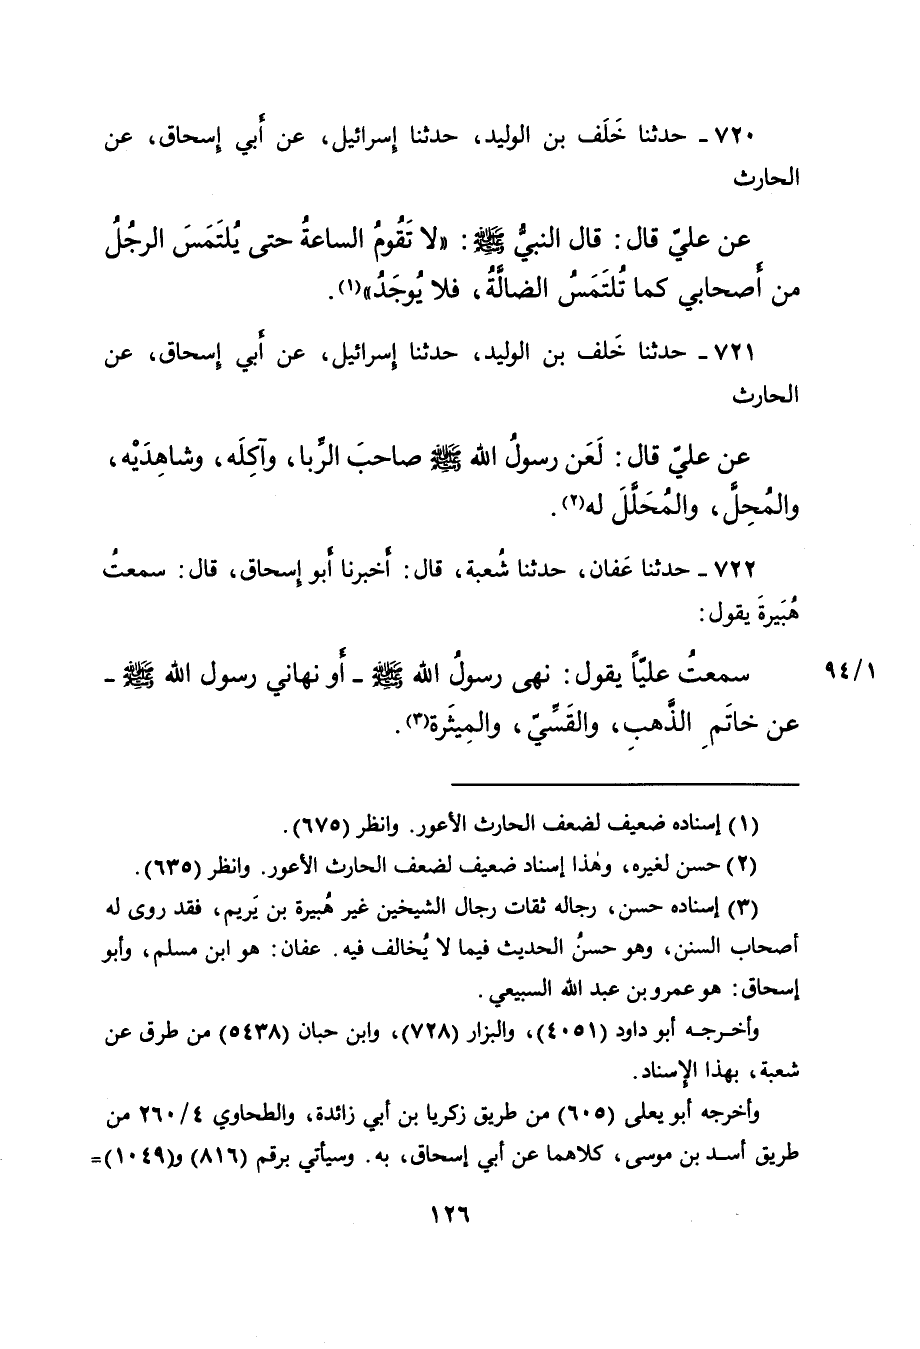 ٧٢٠ ـ حدثنا خَلَف بن الوليد، حدثنا إسرائيل، عن أَبي إسحاق، عن
الحارث
عن عليّ قال: قال النبيُّ ﷺ: «لا تَقُومُ الساعةُ حتى يُلتَمَسَ الرجُلُ
من أَصحابي كما تُلتَمَسُ الضالَّةُ، فلا يُوجَدُ»(١).
٧٢١ ـ حدثنا خَلف بن الوليد، حدثنا إسرائيل، عن أَبي إسحاق، عن
الحارث
عن عليّ قال: لَعَن رسولُ الله ﷺ صاحبَ الرِّبا، وآكِلَه، وشاهِدَيْه،
والمُحِلَّ، والمُحَلَّلَ له(٢).
٧٢٢ ـ حدثنا عَفان، حدثنا شُعبة، قال: أَخبرنا أَبو إسحاق، قال: سمعتُ
هُبَيرةَ يقول:
سمعتُ عليّاً يقول: نهى رسولُ الله ﷺ ـ أَو نهاني رسول الله ﷺ ـ
٩٤/١
عن خاتَمِ الذَّهبِ، والقَسِّيّ، والمِيثَرة(٣).
(١) إسناده ضعيف لضعف الحارث الأعور. وانظر (٦٧٥).
(٢) حسن لغيره، وهٰذا إسناد ضعيف لضعف الحارث الأعور. وانظر (٦٣٥).
(٣) إسناده حسن، رجاله ثقات رجال الشيخين غير هُبيرة بن يَريم، فقد روى له
أصحاب السنن، وهو حسنُ الحديث فيما لا يُخالف فيه. عفان: هو ابن مسلم، وأبو
إسحاق: هو عمرو بن عبد الله السبيعي.
وأخرجه أبو داود (٤٠٥١)، والبزار (٧٢٨)، وابن حبان (٥٤٣٨) من طرق عن
شعبة، بهذا الإسناد.
وأخرجه أبو يعلى (٦٠٥) من طريق زكريا بن أبي زائدة، والطحاوي ٢٦٠/٤ من
طريق أسد بن موسى، كلاهما عن أبي إسحاق، به. وسيأتي برقم (٨١٦) و(١٠٤٩)=
١٢٦